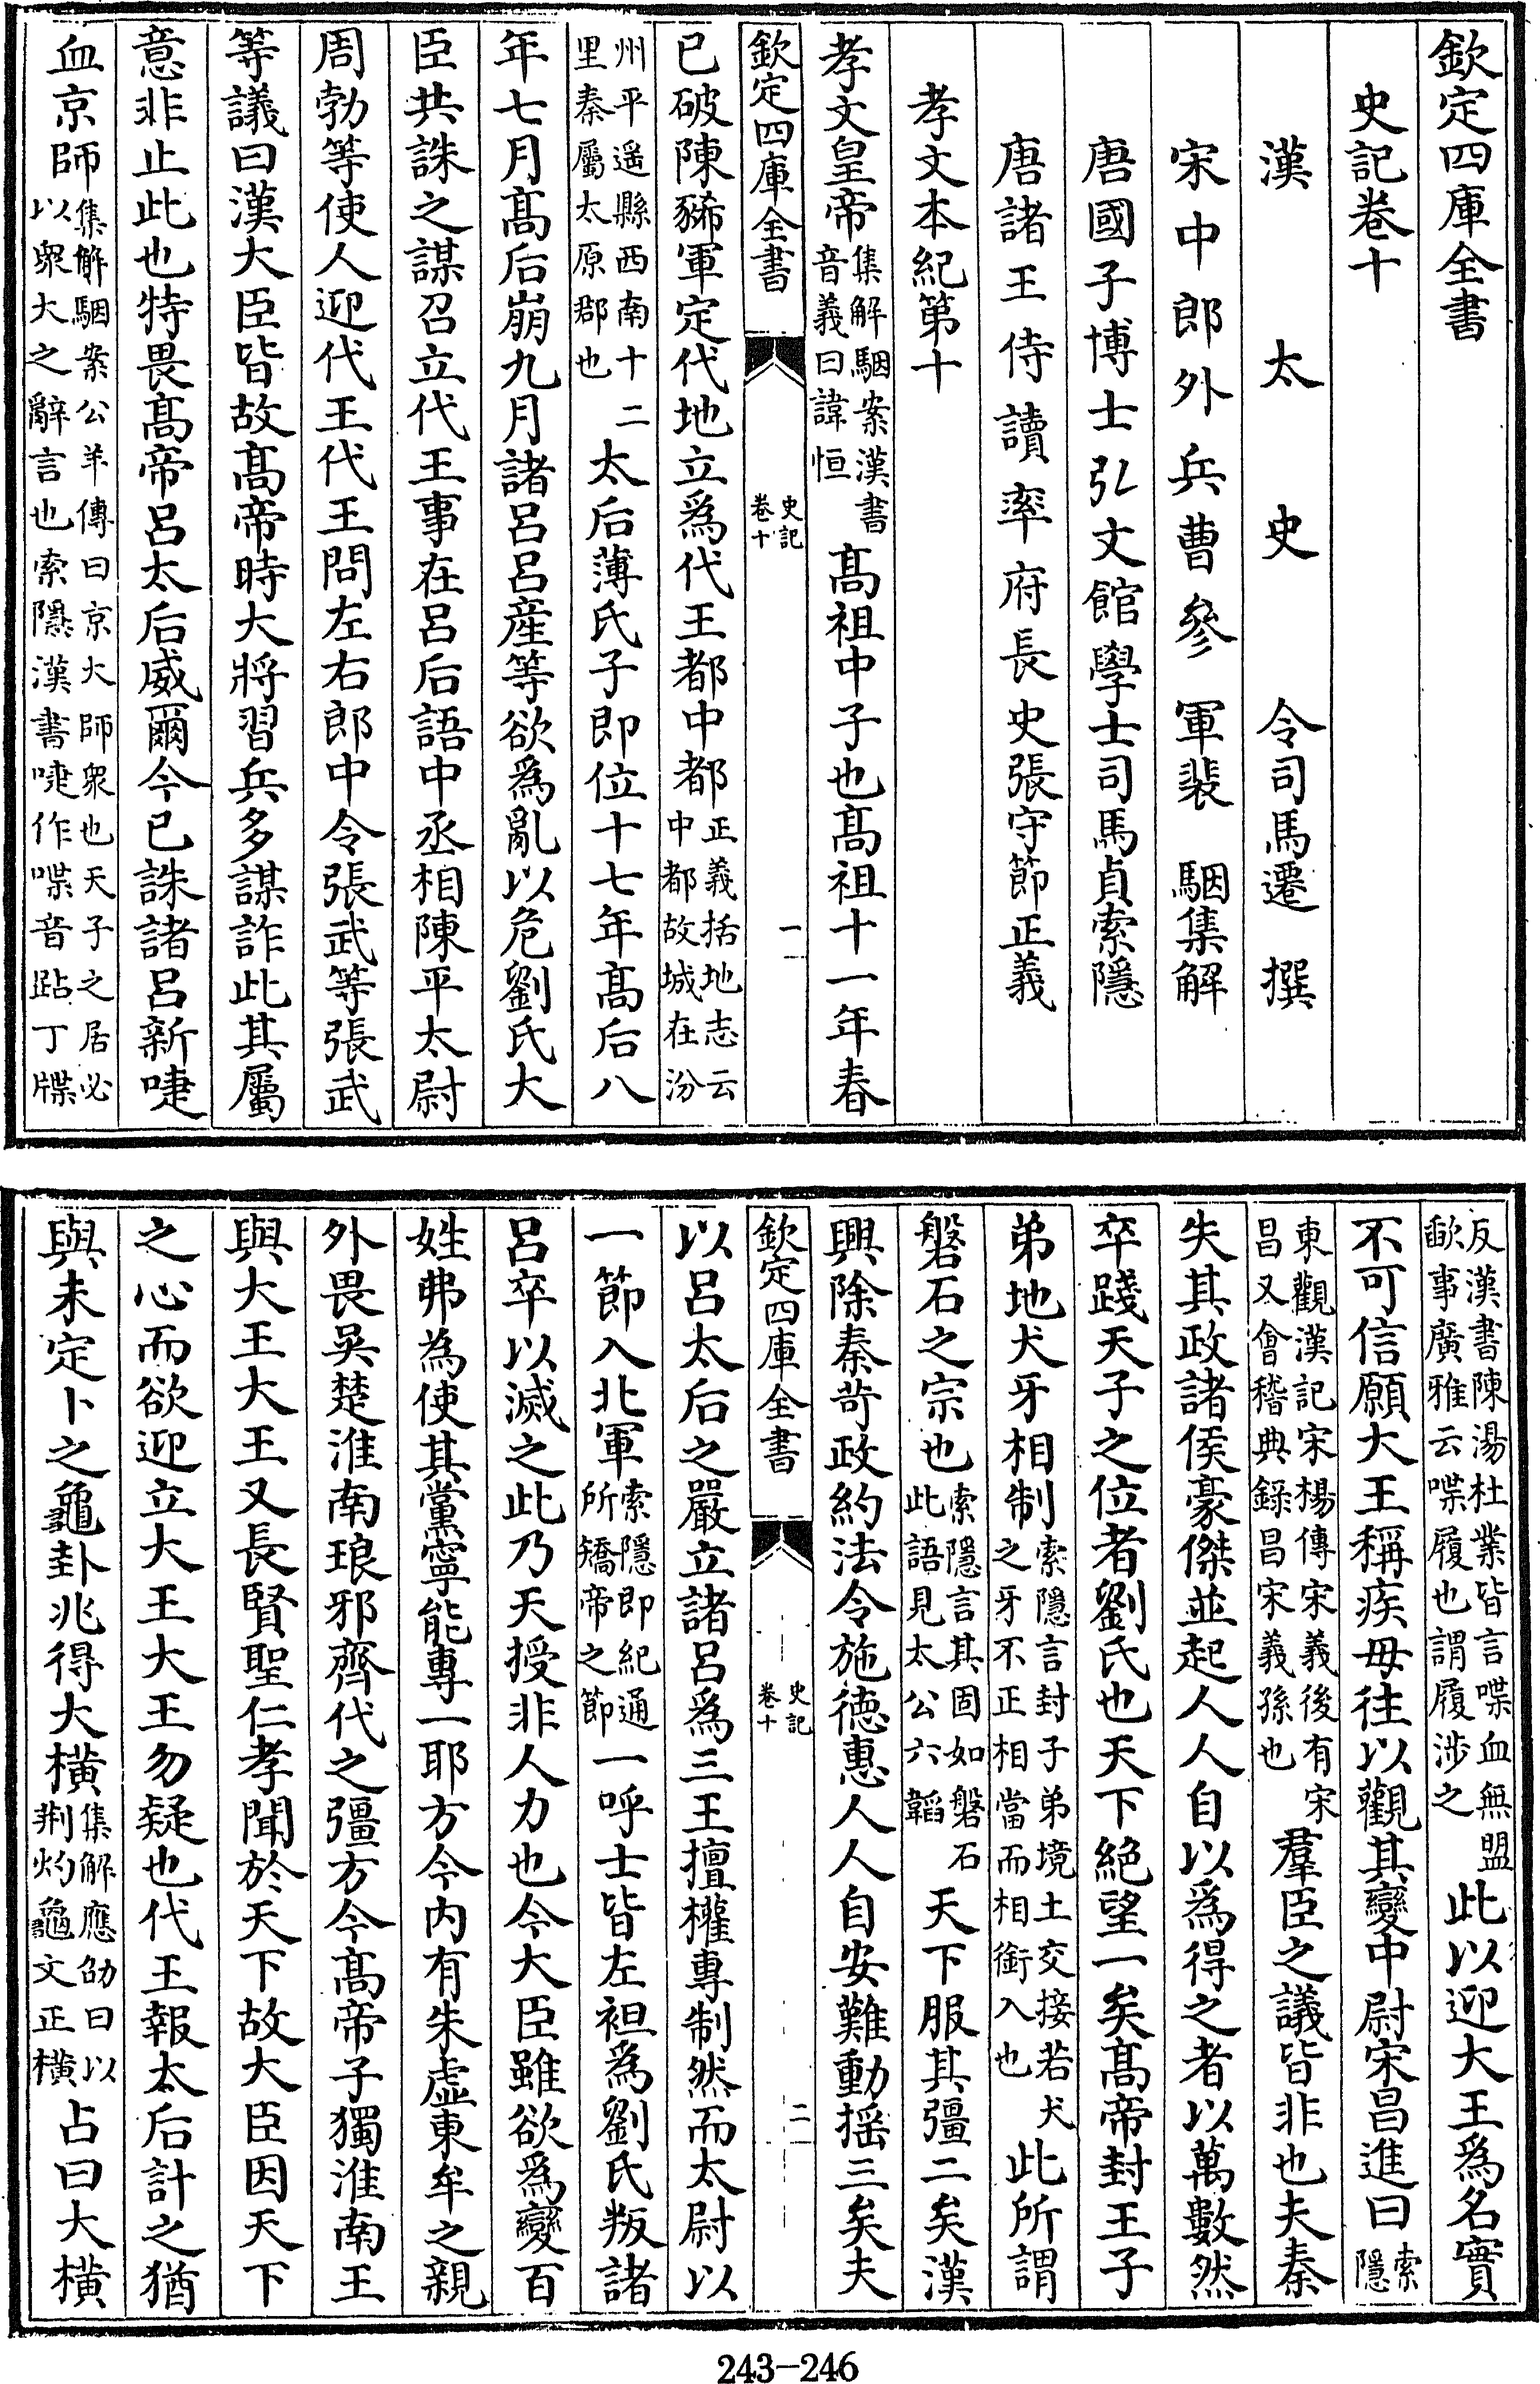 欽定四庫全書
史記卷十
漢太史令司馬遷撰
宋中郎外兵曹參軍裴駰集解
唐國子博士弘文館學士司馬貞索隱
唐諸王侍讀率府長史張守節正義
孝文本紀第十
孝文皇帝集解駰案漢書音義曰諱恒高祖中子也高祖十一年春
欽定四庫全書 史記卷十 一
已破陳豨軍定代地立為代王都中都正義括地志云中都故城在汾
州平遥縣西南十二里秦屬太原郡也太后薄氏子即位十七年高后八
年七月高后崩九月諸呂呂産等欲為亂以危劉氏大
臣共誅之謀召立代王事在呂后語中丞相陳平太尉
周勃等使人迎代王代王問左右郎中令張武等張武
等議曰漢大臣皆故高帝時大將習兵多謀詐此其屬
意非止此也特畏高帝呂太后威爾今已誅諸呂新啑
血京師集解駰案公羊傳曰京大師衆也天子之居必以衆大之辭言也索隱漢書啑作喋音跕丁牒
反漢書陳湯杜業皆言喋血無盟歃事廣雅云喋履也謂履涉之此以迎大王為名實
不可信願大王稱疾毋往以觀其變中尉宋昌進曰索隱
東觀漢記宋楊傳宋義後有宋昌又會稽典録昌宋義孫也羣臣之議皆非也夫秦
失其政諸侯豪傑並起人人自以為得之者以萬數然
卒踐天子之位者劉氏也天下絶望一矣高帝封王子
弟地犬牙相制索隱言封子弟境土交接若犬之牙不正相當而相銜入也此所謂
磐石之宗也索隱言其固如磐石此語見太公六韜天下服其彊二矣漢
興除秦苛政約法令施德惠人人自安難動揺三矣夫
欽定四庫全書 史記卷十 二
以呂太后之嚴立諸呂為三王擅權專制然而太尉以
一節入北軍索隱即紀通所矯帝之節一呼士皆左袒為劉氏叛諸
呂卒以滅之此乃天授非人力也今大臣雖欲為變百
姓弗為使其黨寧能專一耶方今内有朱虚東牟之親
外畏吳楚淮南琅邪齊代之彊方今高帝子獨淮南王
與大王大王又長賢聖仁孝聞於天下故大臣因天下
之心而欲迎立大王大王勿疑也代王報太后計之猶
與未定卜之龜卦兆得大橫集解應劭曰以荆灼龜文正橫占曰大橫
243-246